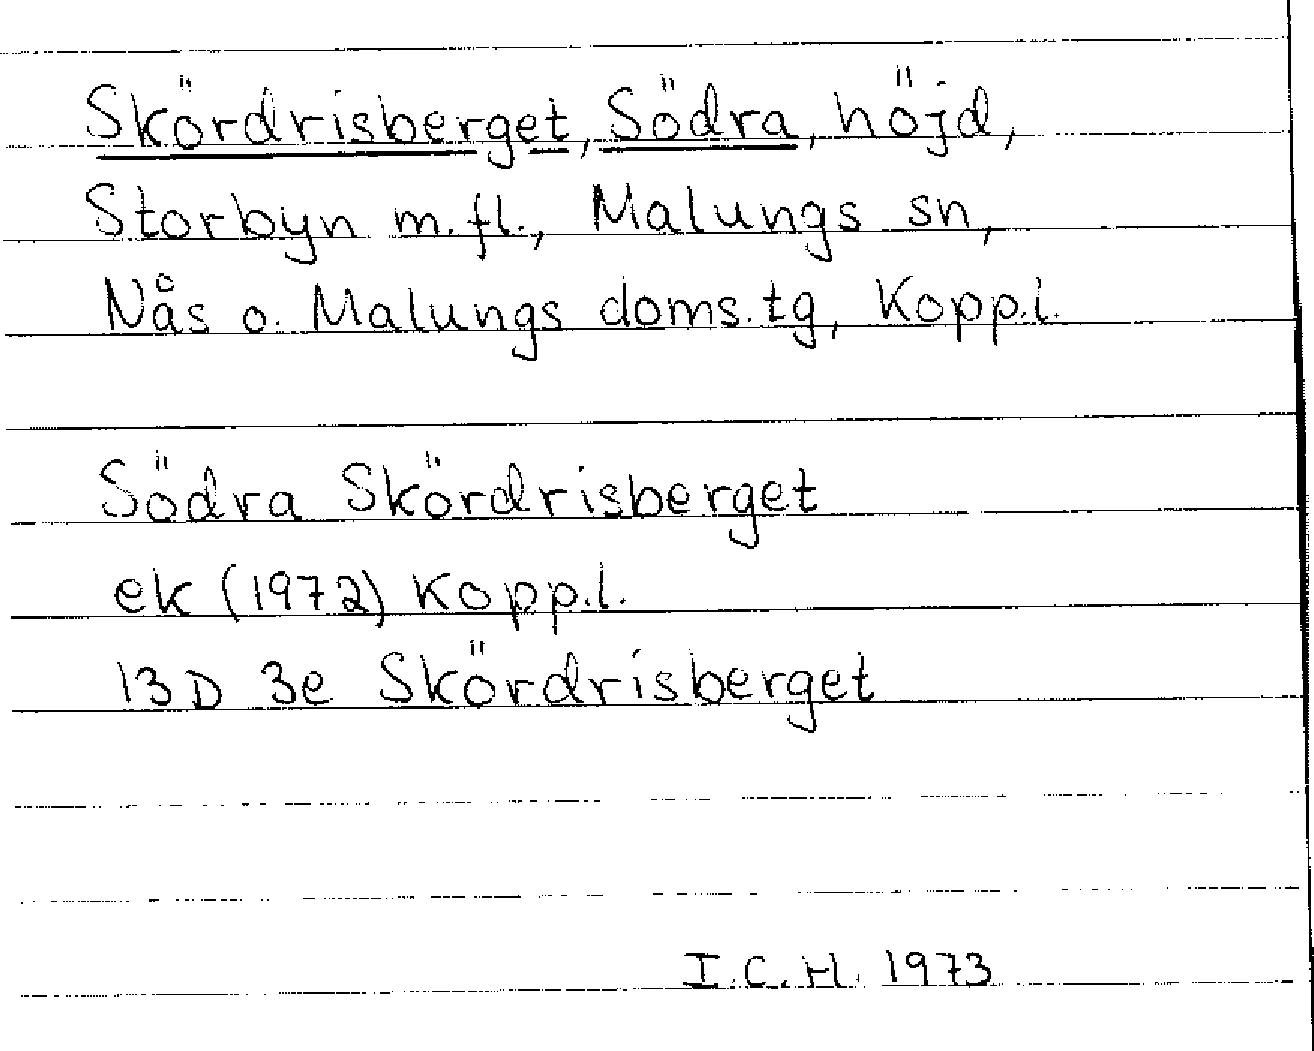 Skördrisberget, Södra, höjd,
Storbyn m.fl., Malungs sn,
Nås o. Malungs doms.tg, Kopp.l.
Södra Skördrisberget
ek (1972) Kopp.l.
13D 3e Skördrisberget
I.C.H. 1973